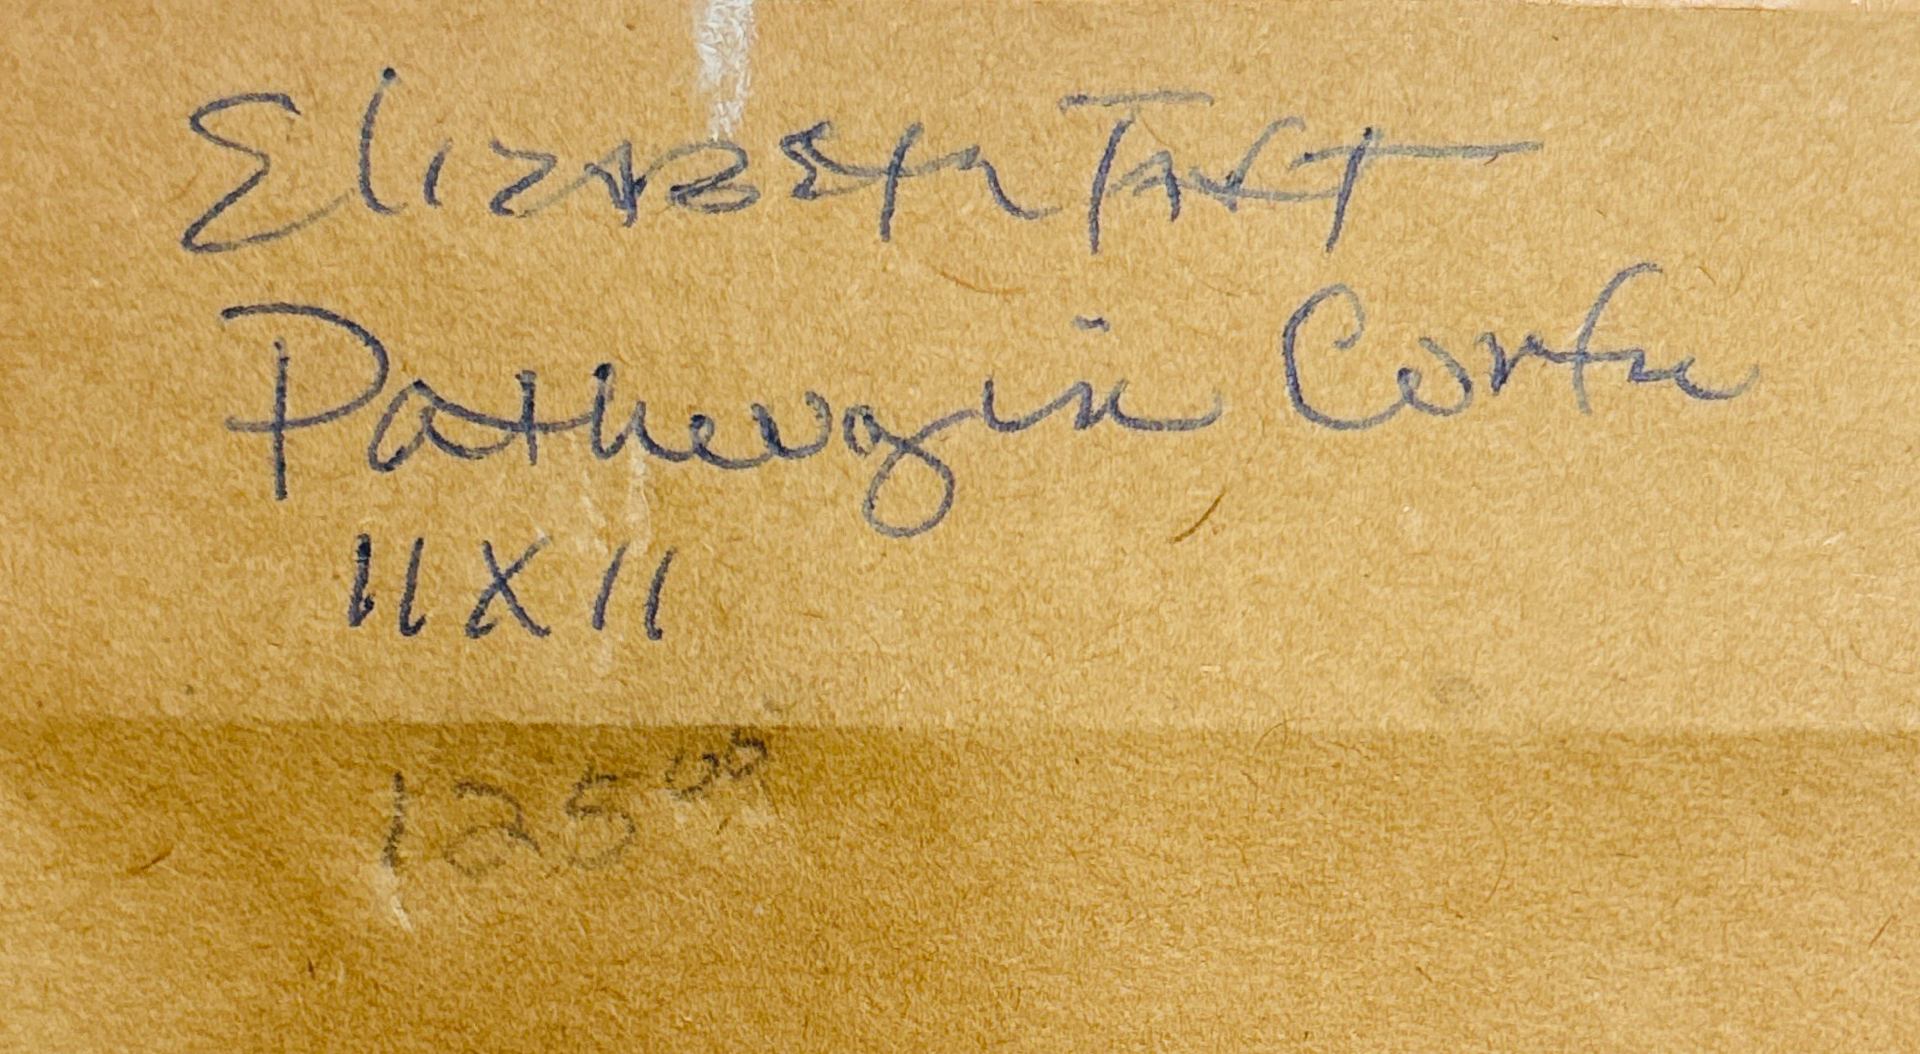 Elizabeth Taft
Pathenogin Corfu
11 X 11
125 00